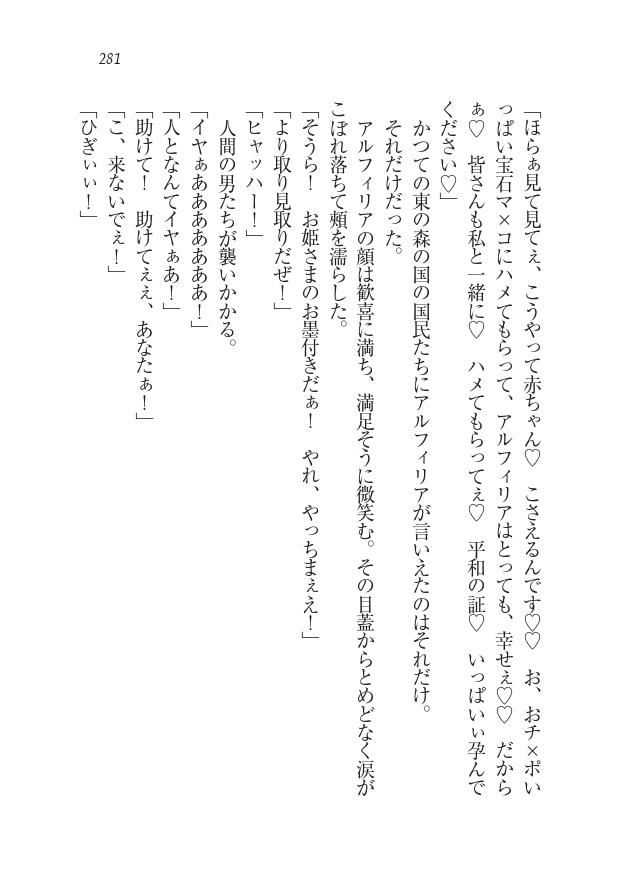 281
「ほらぁ見て見てぇ、こうやって赤ちゃん♡　こさえるんです♡♡　お、おチ×ポい
っぱい宝石マ×コにハメてもらって、アルフィリアはとっても、幸せぇ♡♡　だから
ぁ♡　皆さんも私と一緒に♡　ハメてもらってぇ♡　平和の証♡　いっぱいぃ孕んで
ください♡」
　かつての東の森の国の国民たちにアルフィリアが言いえたのはそれだけ。
　それだけだった。
　アルフィリアの顔は歓喜に満ち、満足そうに微笑む。その目蓋からとめどなく涙が
こぼれ落ちて頰を濡らした。
「そうら！　お姫さまのお墨付きだぁ！　やれ、やっちまぇえ！」
「より取り見取りだぜ！」
「ヒャッハー！」
　人間の男たちが襲いかかる。
「イヤぁああああああ！」
「人となんてイヤぁあ！」
「助けて！　助けてぇぇ、あなたぁ！」
「こ、来ないでぇ！」
「ひぎぃぃ！」